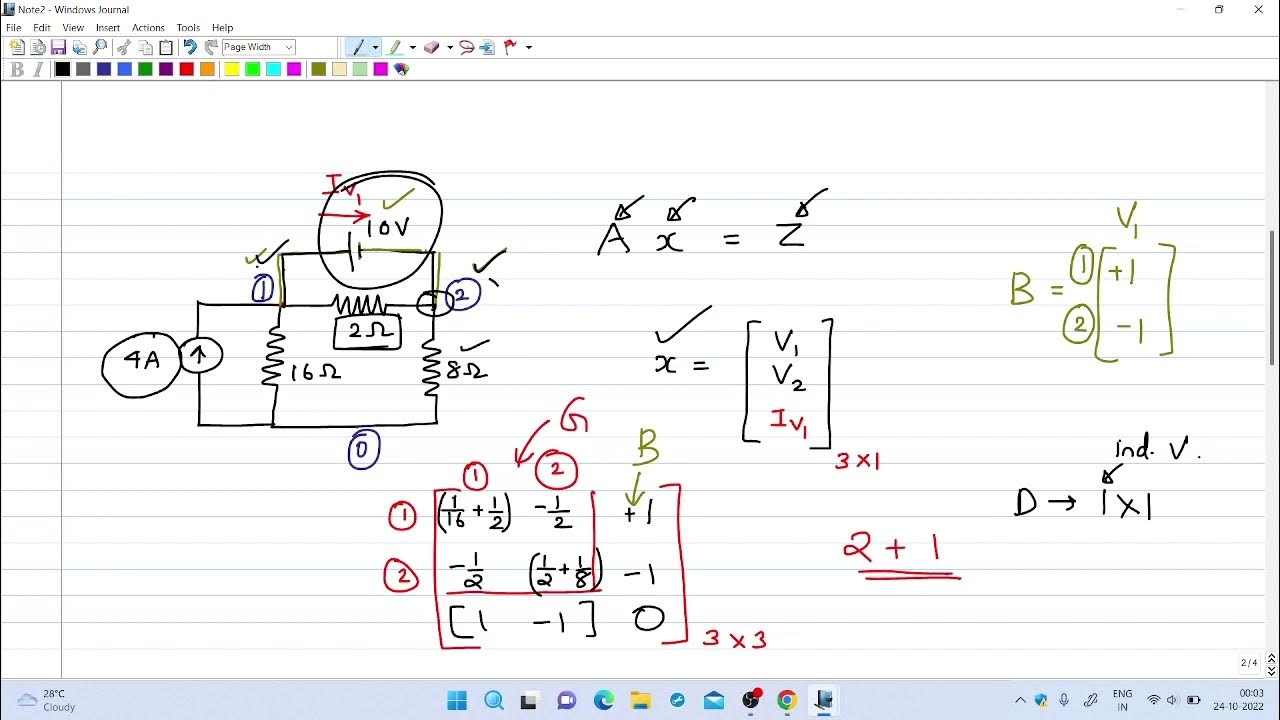 Note2 - Windows Journal
File Edit View Insert Actions Tools Help
Page Width
B I
I v1
10V
1
2
2Ω
4A
16Ω
8Ω
0
A x = Z
x =
V1
V2
Iv1
3×1
V1
B = 1 +1
2 -1
G
B
1 2
1 (1/16 + 1/2) -1/2 +1
2 -1/2 (1/2 + 1/8) -1
[1 -1] 0
3×3
ind. V.
D → 1×1
2 + 1
2/4
28°C
Cloudy
ENG
IN
00:03
24-10-2022